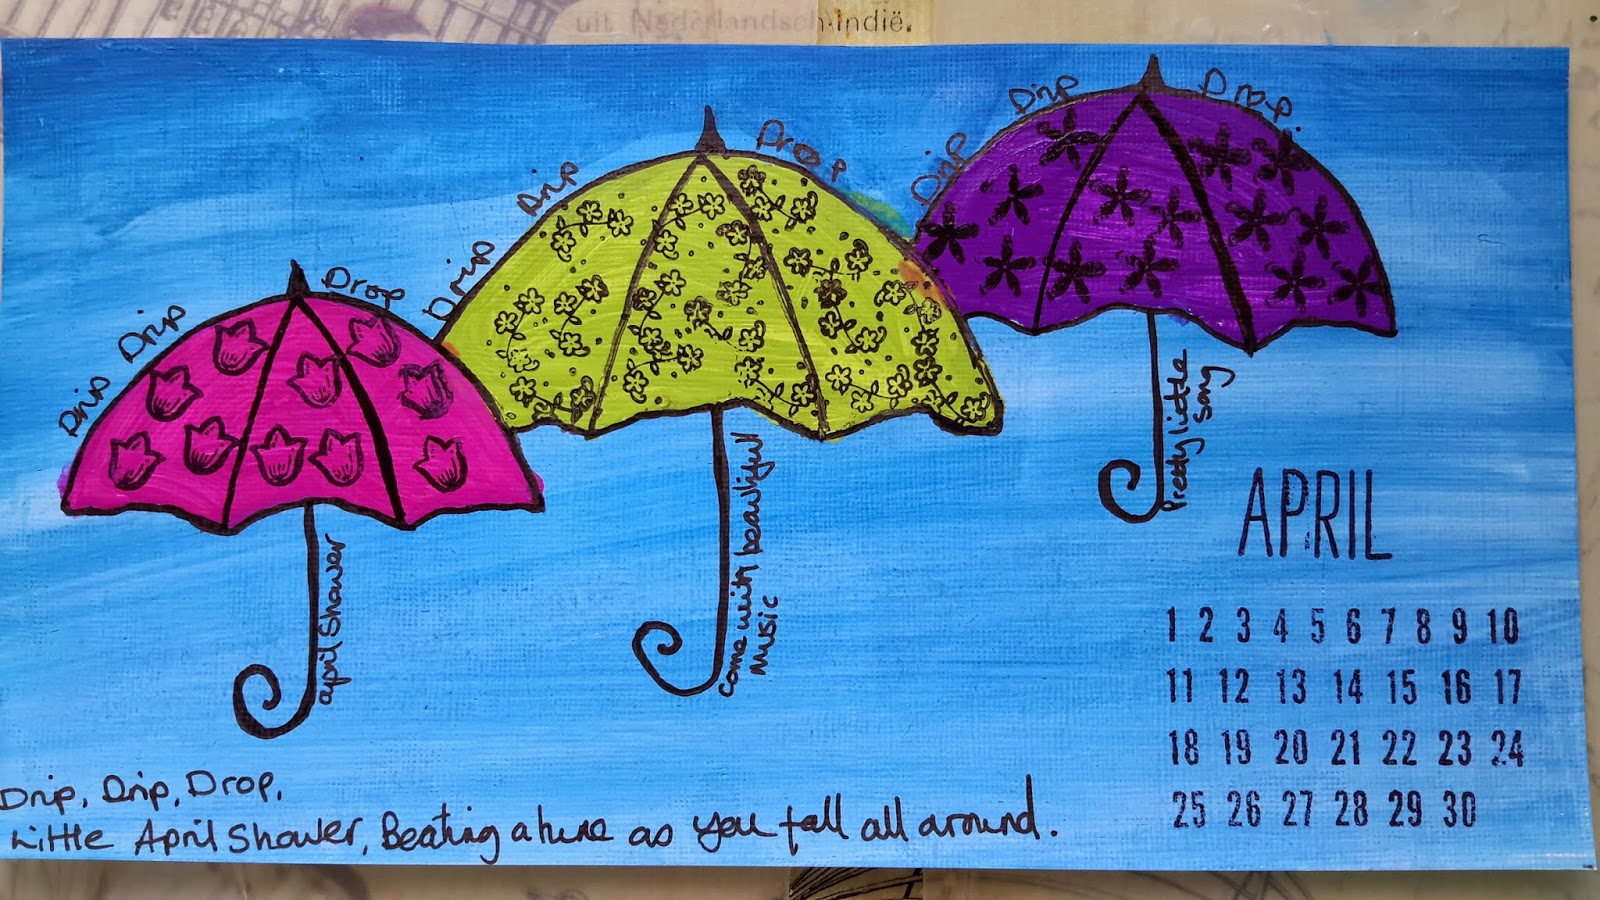 uit Nederlandsch-Indië.
Drip Drip Drop
april Shower
Drip Drip Drop
come with beautiful
music
Drip Drip Drop
Pretty little
song
APRIL
1 2 3 4 5 6 7 8 9 10
11 12 13 14 15 16 17
18 19 20 21 22 23 24
25 26 27 28 29 30
Drip, Drip, Drop,
Little April Shower, Beating a tune as you fall all around.